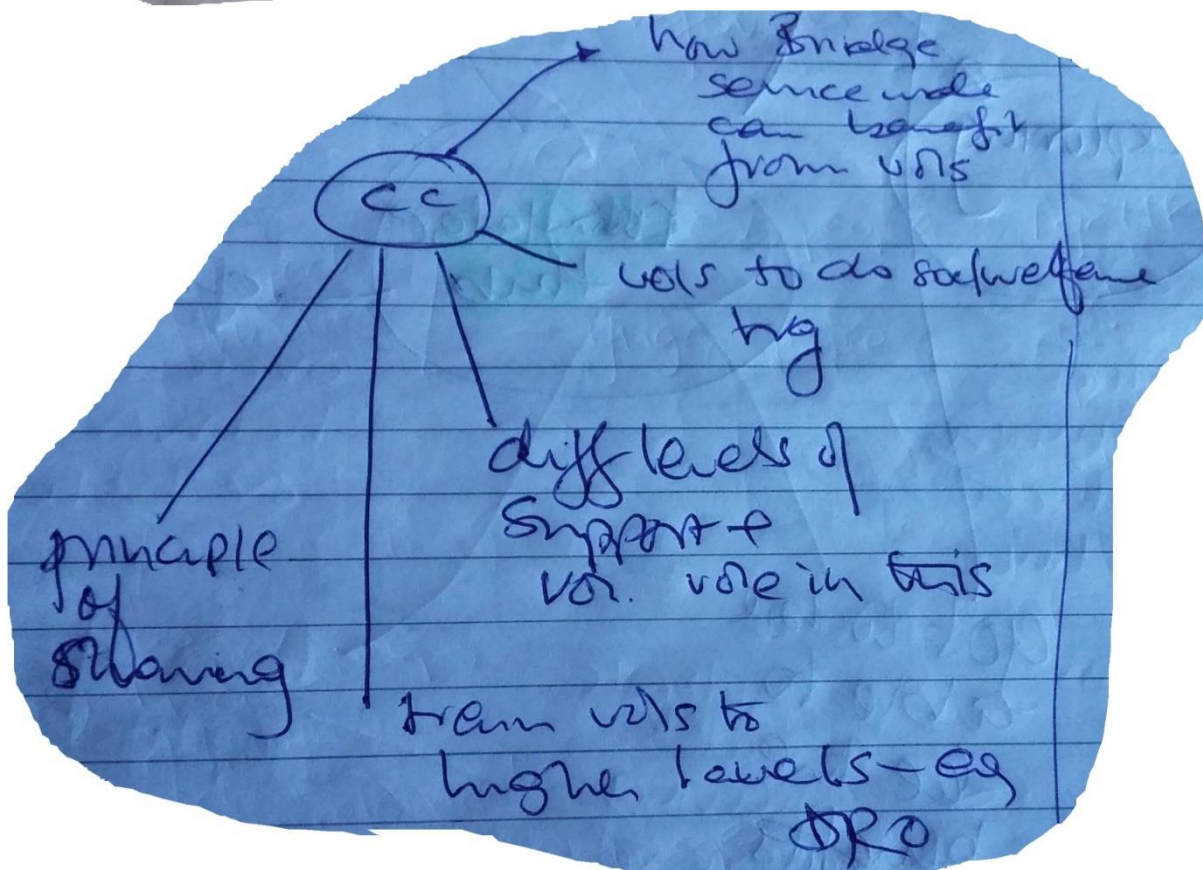 how Bridge
service wide
can benefit
from vols
CC
vols to do soc/welfare
trg
diff levels of
support +
vol. role in this
principle
of
sharing
train vols to
higher levels - eg
DRO